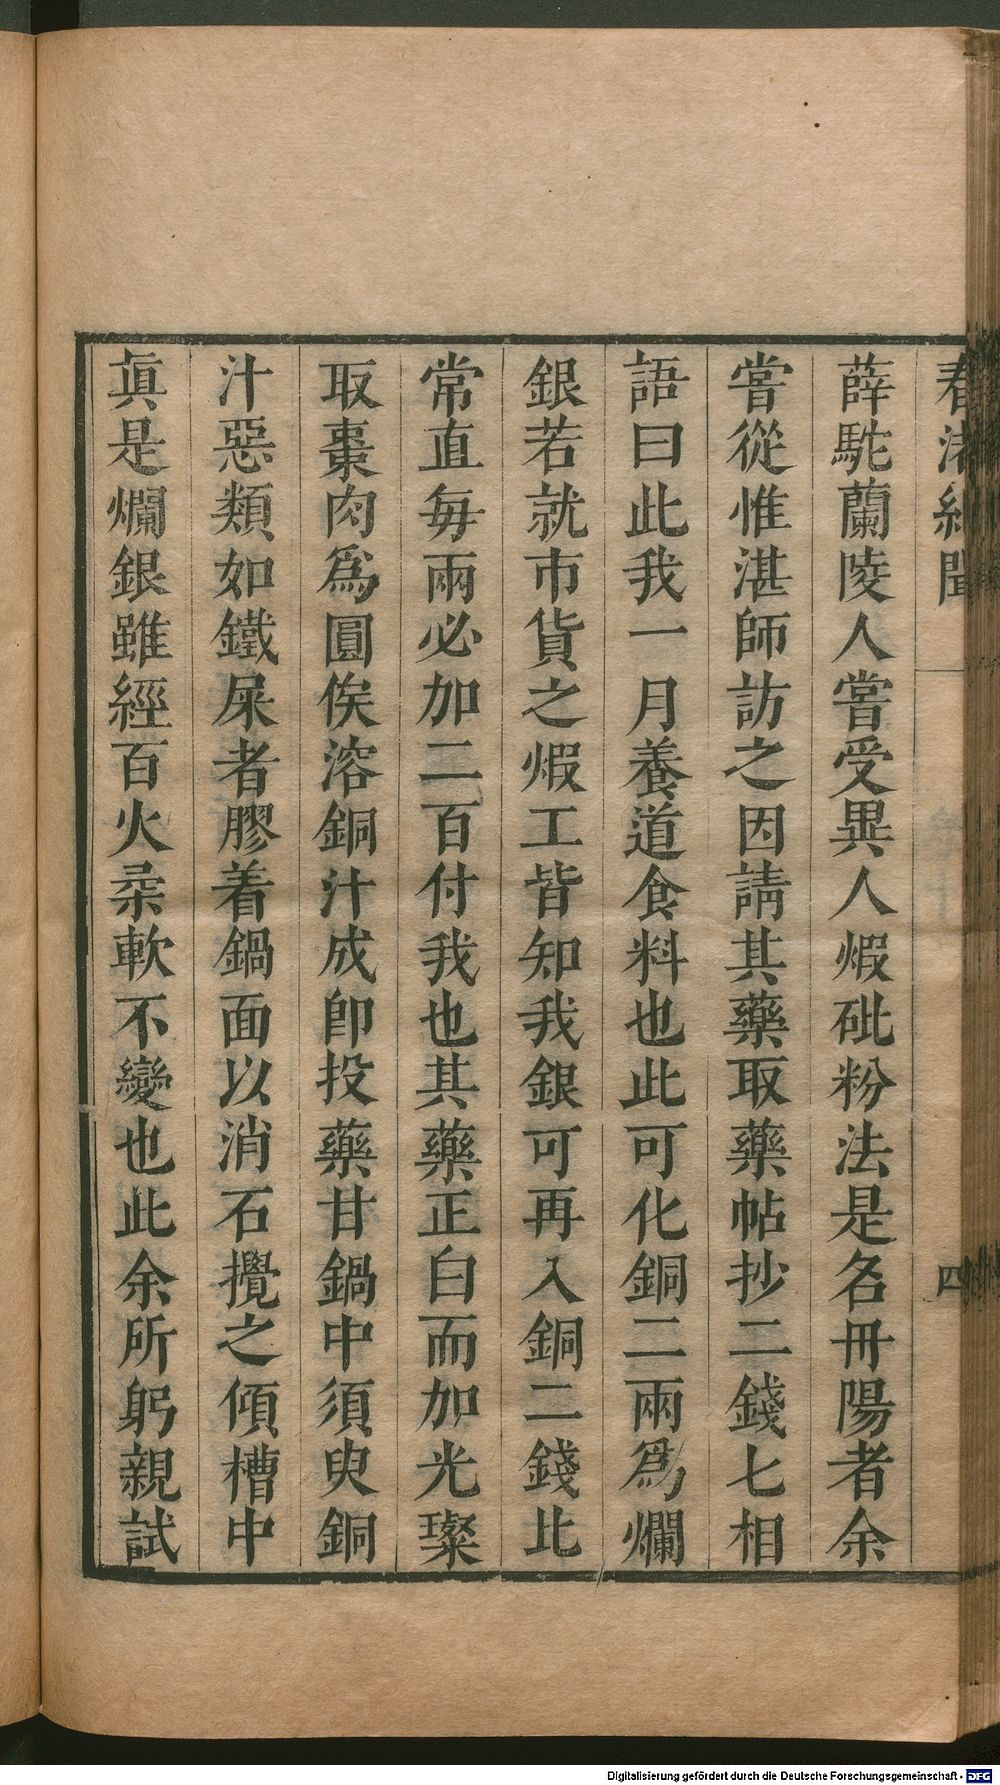 春渚紀聞
四
薛駝蘭陵人嘗受異人煆砒粉法是名丹陽者余
嘗從惟湛師訪之因請其藥取藥帖抄二錢匕相
語曰此我一月養道食料也此可化銅二兩為爛
銀若就市貨之煆工皆知我銀可再入銅二錢比
常直毎兩必加二百付我也其藥正白而加光璨
取棗肉為圓俟溶銅汁成卽投藥甘鍋中須臾銅
汁惡類如鐵屎者膠着鍋面以消石攪之傾槽中
眞是爛銀雖經百火柔軟不變也此余所躬親試
Digitalisierung gefördert durch die Deutsche Forschungsgemeinschaft - DFG